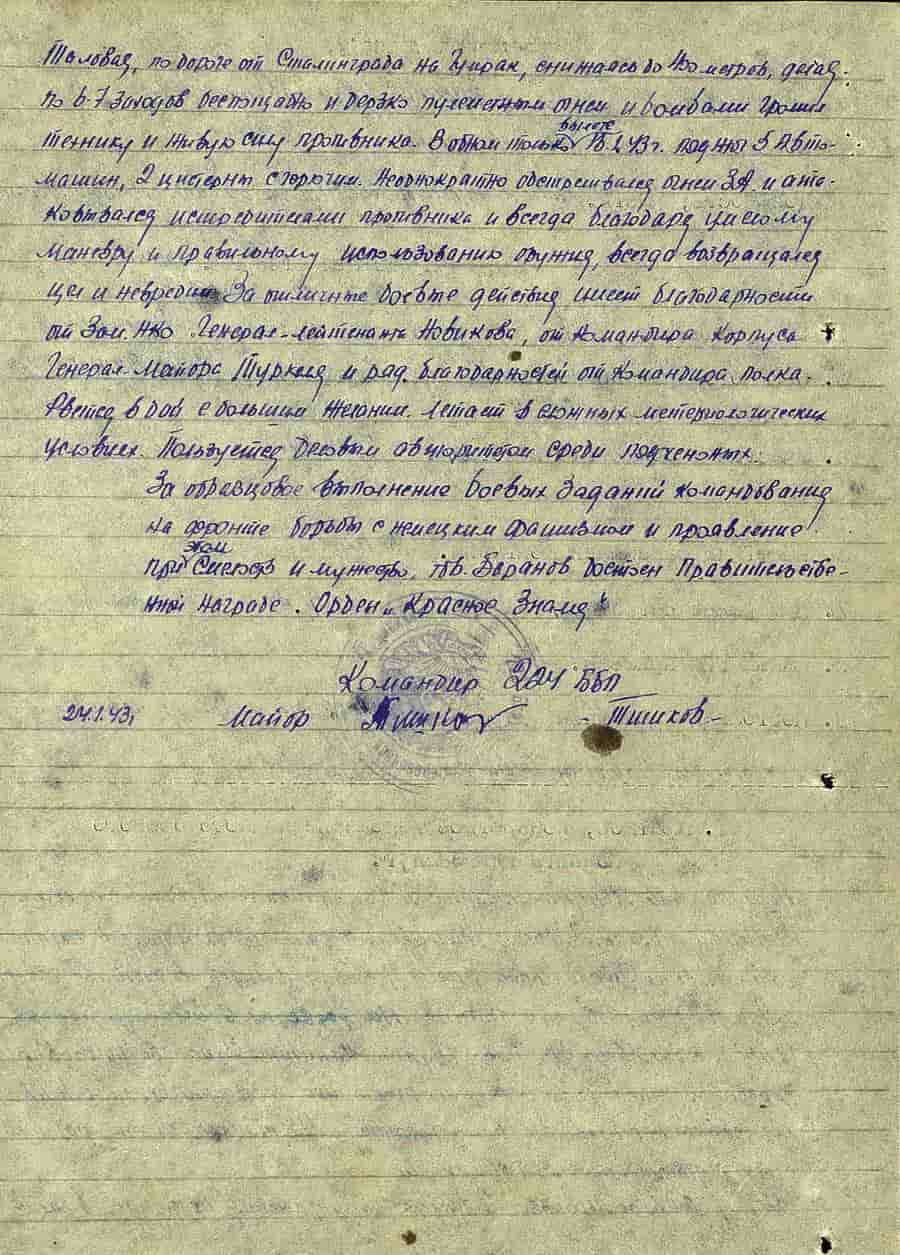 Таловая, по дороге от Сталинграда на Гумрак, снижаясь до 400 метров, делая
по 6-7 заходов беспощадно и дерзко пулеметным огнем и бомбами громил
технику и живую силу противника. В одном только вылете 1943г. поджог 5 Авто-
машин, 2 цистерны с горючим. Неоднократно обстреливался огнем ЗА и ата-
ковывался истребителями противника и всегда благодаря умелому
маневру и правильному использованию оружия, всегда возвращался
цел и невредим. За отличные боевые действия имеет благодарности
от Зам. НКО Генерал-лейтенанта Новикова, от Командира Корпуса
Генерал-Майора Туркеля и ряд благодарностей от Командира полка.
Рвется в бой с большим желанием. Летает в сложных метериологических
условиех. Пользуется деловым авторитетом среди подчененых.
За образцовое выполнение боевых заданий командования
на фронте борьбы с немецким фашизмом и проявление
при этом смелость и мужество, тов. Баранов достоен Правительстве-
нной награде. Орден "Красное Знамя"
Командир 224 ББП
24.1.43г Майор - Тишиков -